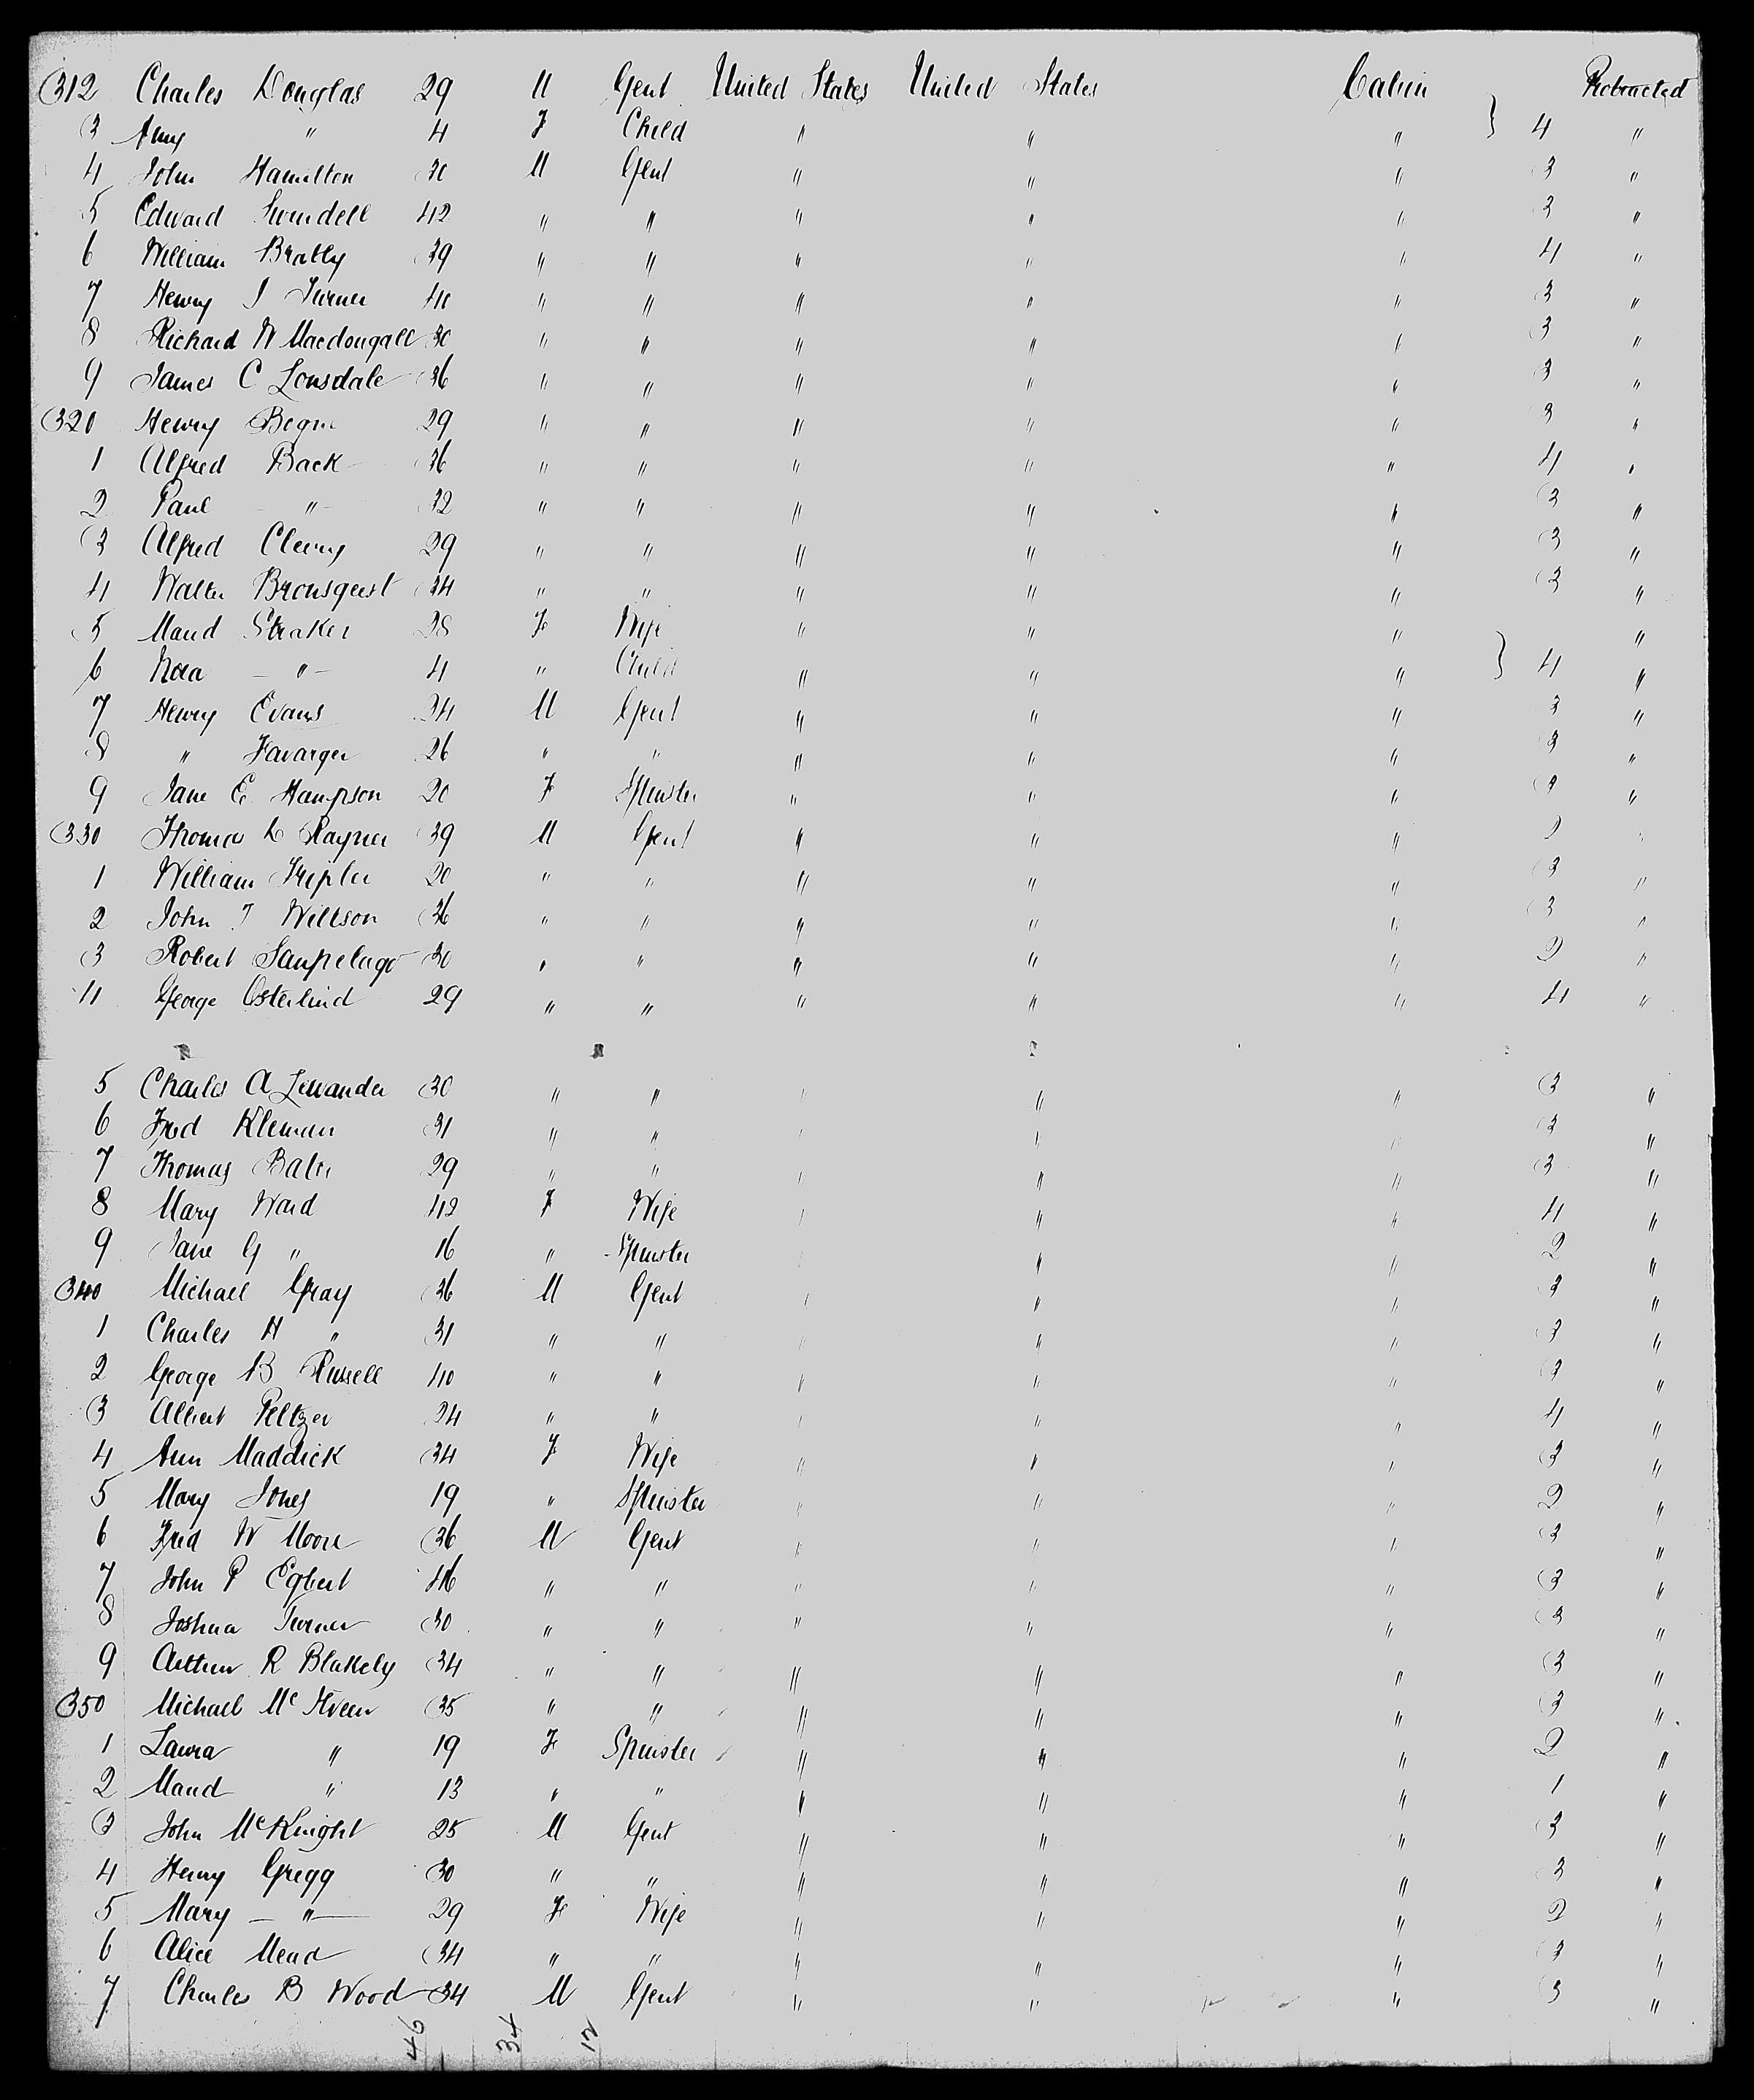 312 Charles Douglas 29 M Gent United States United States Cabin Protracted
3 Amy " 4 F Child " " " } 4 "
4 John Hamilton 30 M Gent " " " 3 "
5 Edward Swindell 42 " " " " " 3 "
6 William Bratty 39 " " " " " 4 "
7 Henry J Turner 40 " " " " " 3 "
8 Richard W Macdougall 30 " " " " " 3 "
9 James C Lonsdale 36 " " " " " 3 "
320 Henry 29 " " " " " 3 "
1 Alfred Back 36 " " " " " 4 "
2 Paul - " - 32 " " " " " 3 "
3 Alfred 29 " " " " " 3 "
4 Walter Bronsgeest 34 " " " " " 3 "
5 Maud Straker 28 F Wife " " " "
6 Nora - " - 4 " Child " " " } 4 "
7 Henry Evans 24 M Gent " " " 3 "
8 " Favarger 26 " " " " " 3 "
9 Jane E Hampson 20 F Spinster " " " "
330 Thomas Rayner 39 M Gent " " " 2 "
1 William Tripler 20 " " " " " 3 "
2 John T Willson 36 " " " " " 3 "
3 Robert Sanpelago 30 " " " " " 2 "
4 George Osterlind 29 " " " " " 4 "
5 Charles A Lewander 30 " " " " " 3 "
6 Fred Kleman 31 " " " " " 3 "
7 Thomas 29 " " " " " 3 "
8 Mary Ward 42 F Wife " " " 4 "
9 Jane G " 16 " Spinster " " " 2 "
340 Michael Gray 36 M Gent " " " 3 "
1 Charles H " 31 " " " " " 3 "
2 George B Russell 40 " " " " " 3 "
3 Albert Peltzer 24 " " " " " 4 "
4 Ann Maddick 34 F Wife " " " 3 "
5 Mary Jones 19 " Spinster " " " 2 "
6 Fred W Moore 36 M Gent " " " 3 "
7 John P Egbert 46 " " " " " 3 "
8 Joshua Turner 30 " " " " " 3 "
9 Arthur R Blakely 34 " " " " " 3 "
350 Michael 35 " " " " " 3 "
1 Laura " 19 F Spinster " " " 2 "
2 Maud " 13 " " " " " 1 "
3 John McKnight 25 M Gent " " " 3 "
4 Henry Gregg 30 " " " " " 3 "
5 Mary - " - 29 F Wife " " " 2 "
6 Alice Mead 34 " " " " " 3 "
7 Charles B Wood 34 M Gent " " " 3 "
46 34 12